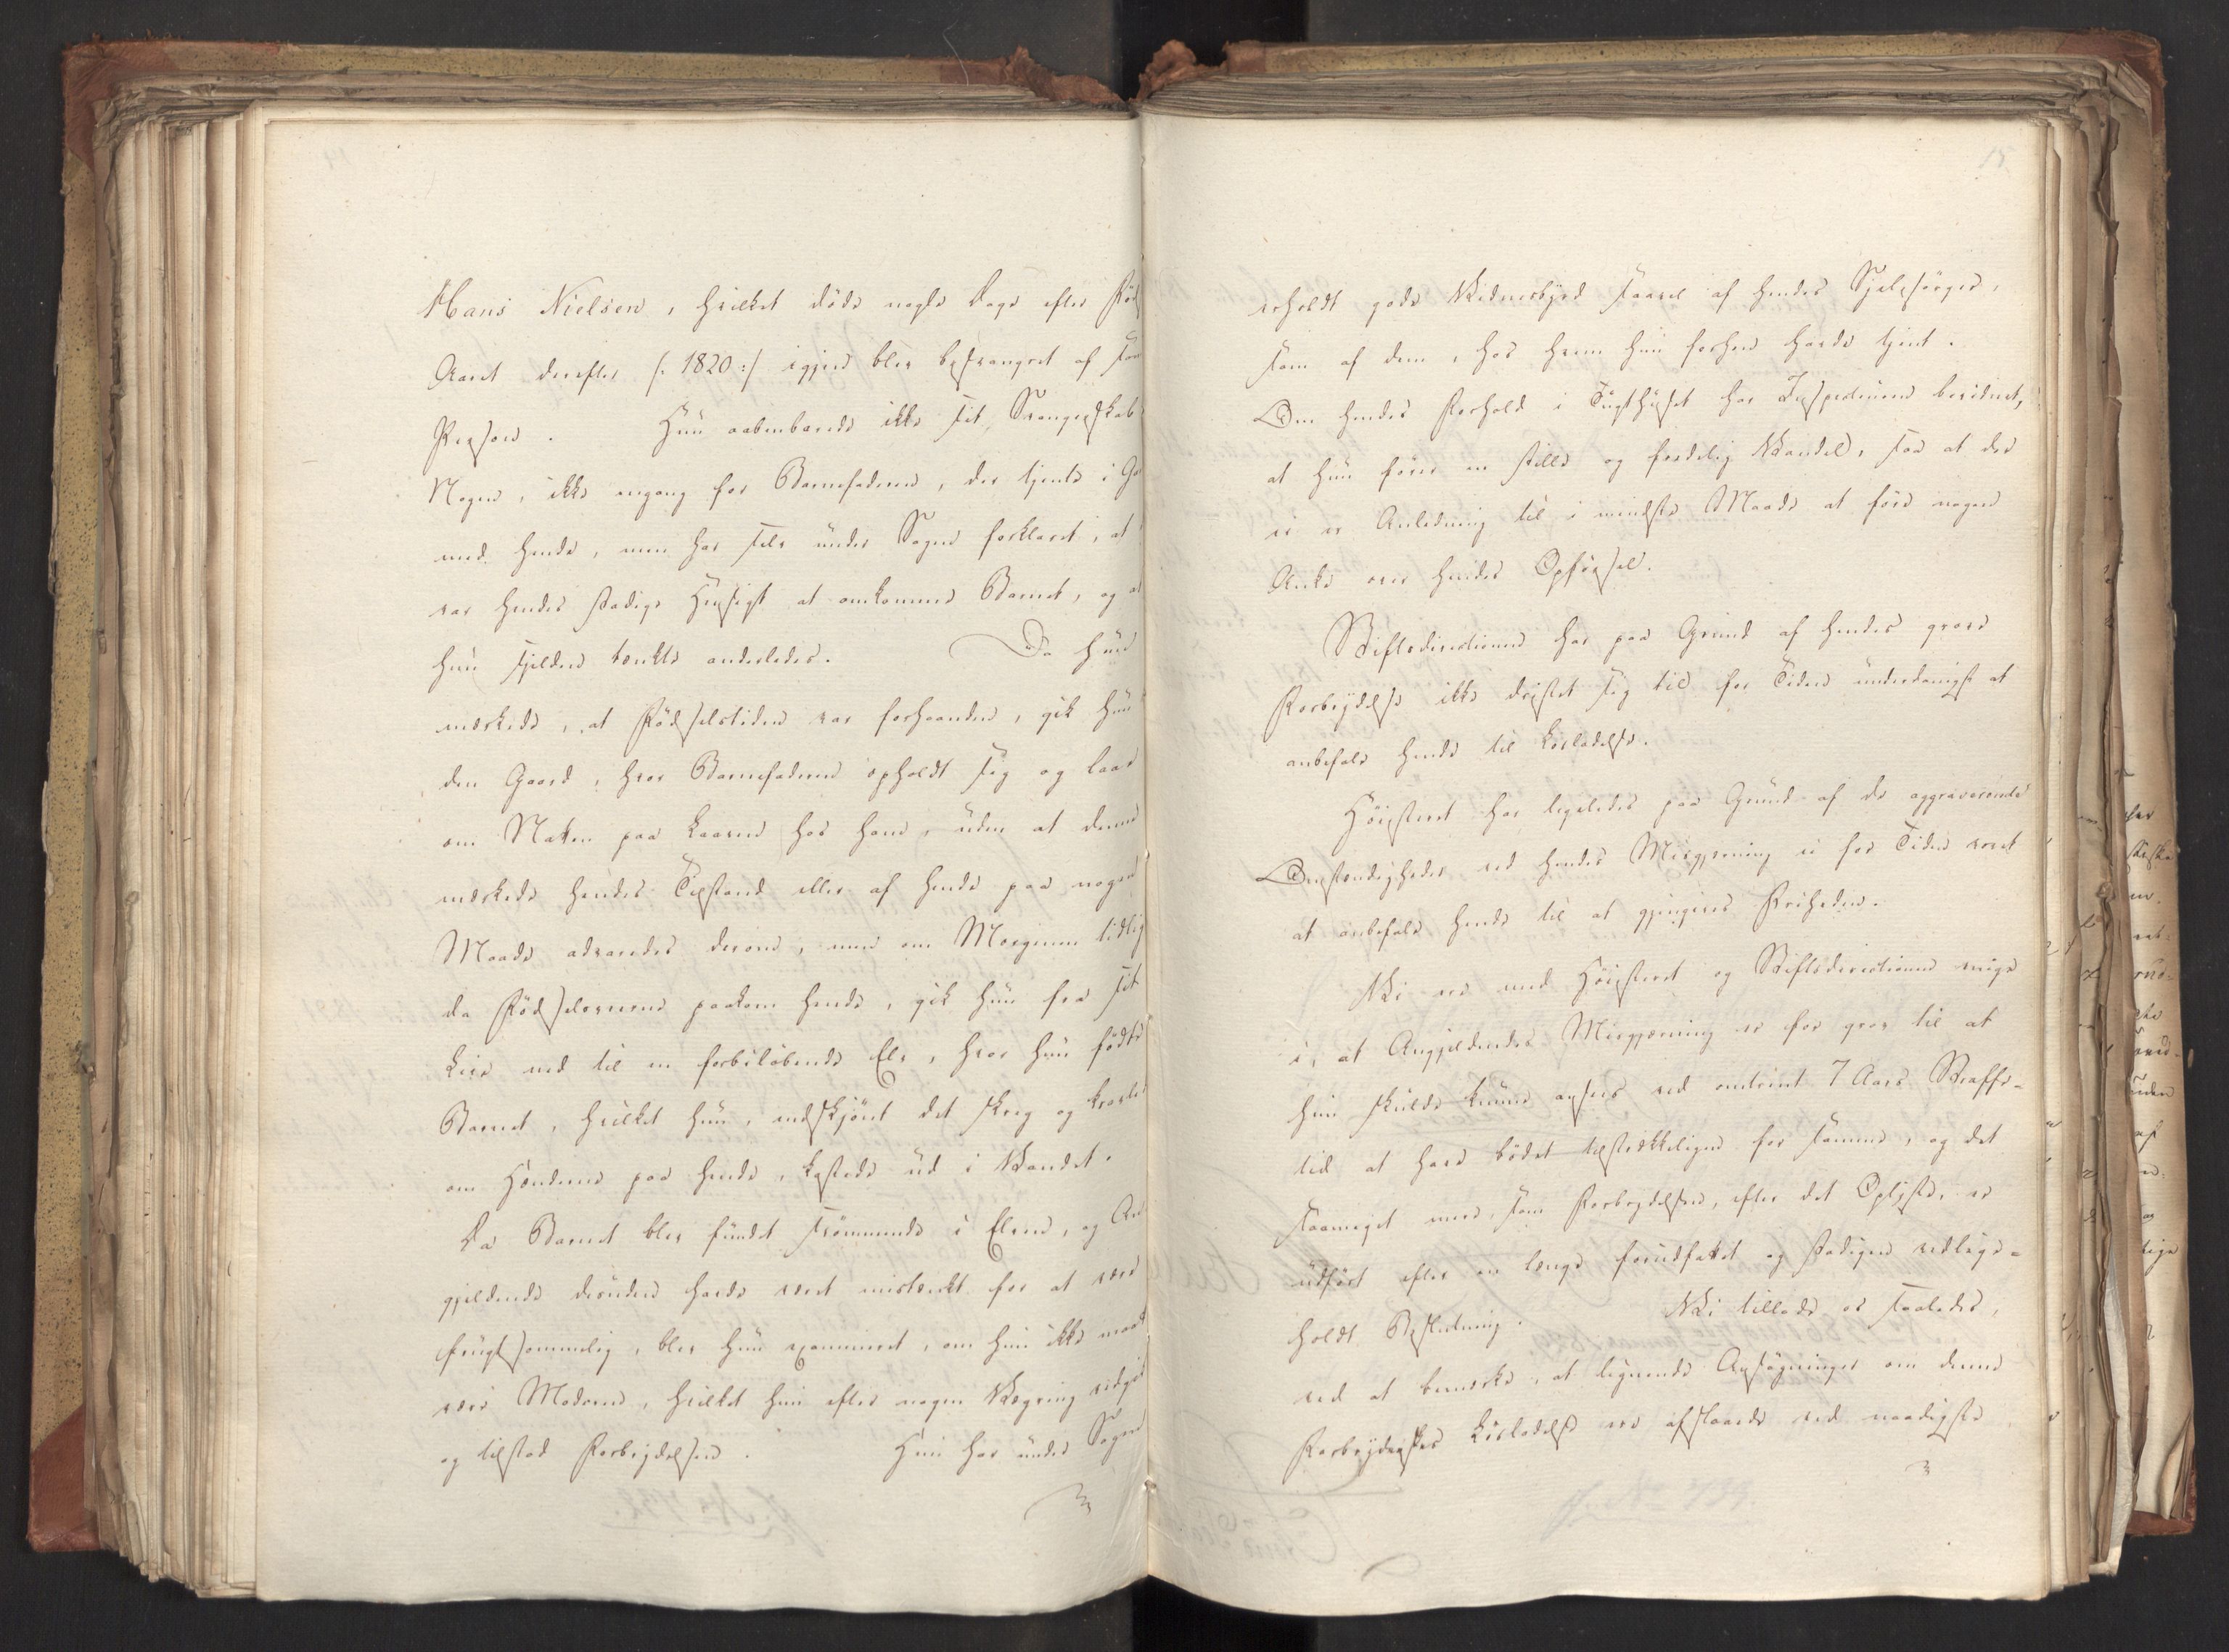 Hans Nielsen, hvilket døde nogle Dage efter Fød
Aaret derefter /: 1820 :/ igjen blev besvangret af sam
Person. Hun aabenbarede ikke sit Svangerskab
Nogen, ikke engang for Barnefaderen, der tjente i Ga
med hende, men har selv under Sagen forklaret, at
var hendes stadige Hensigt at omkomme Barnet, og at
hun sjelden tænkte anderledes. Da hun
mærkede, at Fødselstiden var forhaanden, gik hun
den Gaard, hvor Barnefaderen opholdt sig og laae
om Natten paa Laaven hos ham, uden at denne
mærkede hendes Tilstand eller af hende paa nogen
Maade advaredes derom, men om Morgenen tidlig
da Fødselsveerne paakom hende, gik hun fra sit
Leie ned til en forbiløbende Elv, hvor hun fødte
Barnet, hvilket hun, endskjønt det skreg og kravlede
om Hænderne paa hende, kastede ud i Vandet.
Da Barnet blev fundet svømmende i Elven, og An
gjeldende desuden havde været mistænkt for at være
frugtsommelig, blev hun examineret, om hun ikke maat
være Moderen, hvilket hun efter nogen Vægring vedgik
og tilstod Forbrydelsen. Hun har under Sagen
15
erholdt gode Vidnesbyrd saavel af hendes Sjælesørger,
som af dem, hos hvem hun forhen havde tjent.
Om hendes Forhold i Tugthuset har Inspecteuren bevidnet,
at hun fører en stille og fredelig Vandel, saa at der
ei er Anledning til i mindste Maade at føre nogen
Anke over hendes Opførsel.
Stiftsdirectionen har paa Grund af hendes grove
Forbrydelse ikke dristet sig til for Tiden underdanigst at
anbefale hende til Løsladelse.
Høiesteret har ligeledes paa Grund af de aggraverende
Omstændigheder ved hendes Misgjerning ei for Tiden voveet
at anbefale hende til at gjengives Friheden.
Vi ere med Høiesteret og Stiftsdirectionen enige
i, at Angjeldendes Misgjerning er for grov til at
hun skulde kunne ansees ved omtrent 7 Aars Straffe-
tid at have bødet tilstrækkeligen for samme, og det
saameget mere, som Forbrydelsen, efter det Oplyste, er
udført efter en længe forudfattet og stadigen vedlige-
holdt Beslutning. Vi tillade os saaledes,
ved at bemærke, at lignende Ansøgninger om denne
Forbryderskes Løsladelse ere afslaaede ved naadigste